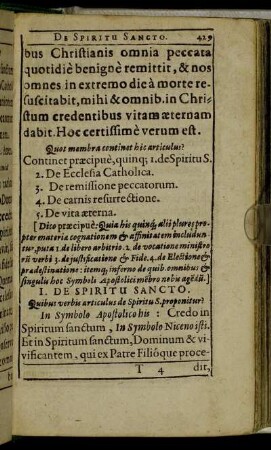 DE SPIRITU SANCTO. 429
bus Christianis omnia peccata
quotidiè benignè remittit, & nos
omnes in extremo die à morte re-
suscitabit, mihi & omnib. in Chri-
stum credentibus vitam æternam
dabit. Hoc certissimè verum est.
Quot membra continet hic articulus?
Continet præcipuè, quinq; 1. de Spiritu S.
2. De Ecclesia Catholica.
3. De remissione peccatorum.
4. De carnis resurrectione.
5. De vita æterna.
[Dico præcipuè: Quia his quinq; alii plures pro-
pter materiæ cognationem & affinitatem includun-
tur, puta 1. de libero arbitrio. 2. de vocatione ministro-
rii verbi 3. de justificatione & Fide. 4. de Electione &
prædestinatione: itemq; inferno de quib. omnibus &
singulis hoc Symboli Apostolici mēbro nobis agēdū.]
I. DE SPIRITU SANCTO.
Quibus verbis articulus de Spiritu S. proponitur?
In Symbolo Apostolico his: Credo in
Spiritum sanctum, In Symbolo Niceno isti.
Et in Spiritum sanctum, Dominum & vi-
vificantem, qui ex Patre Filióque proce-
T 4 dit,